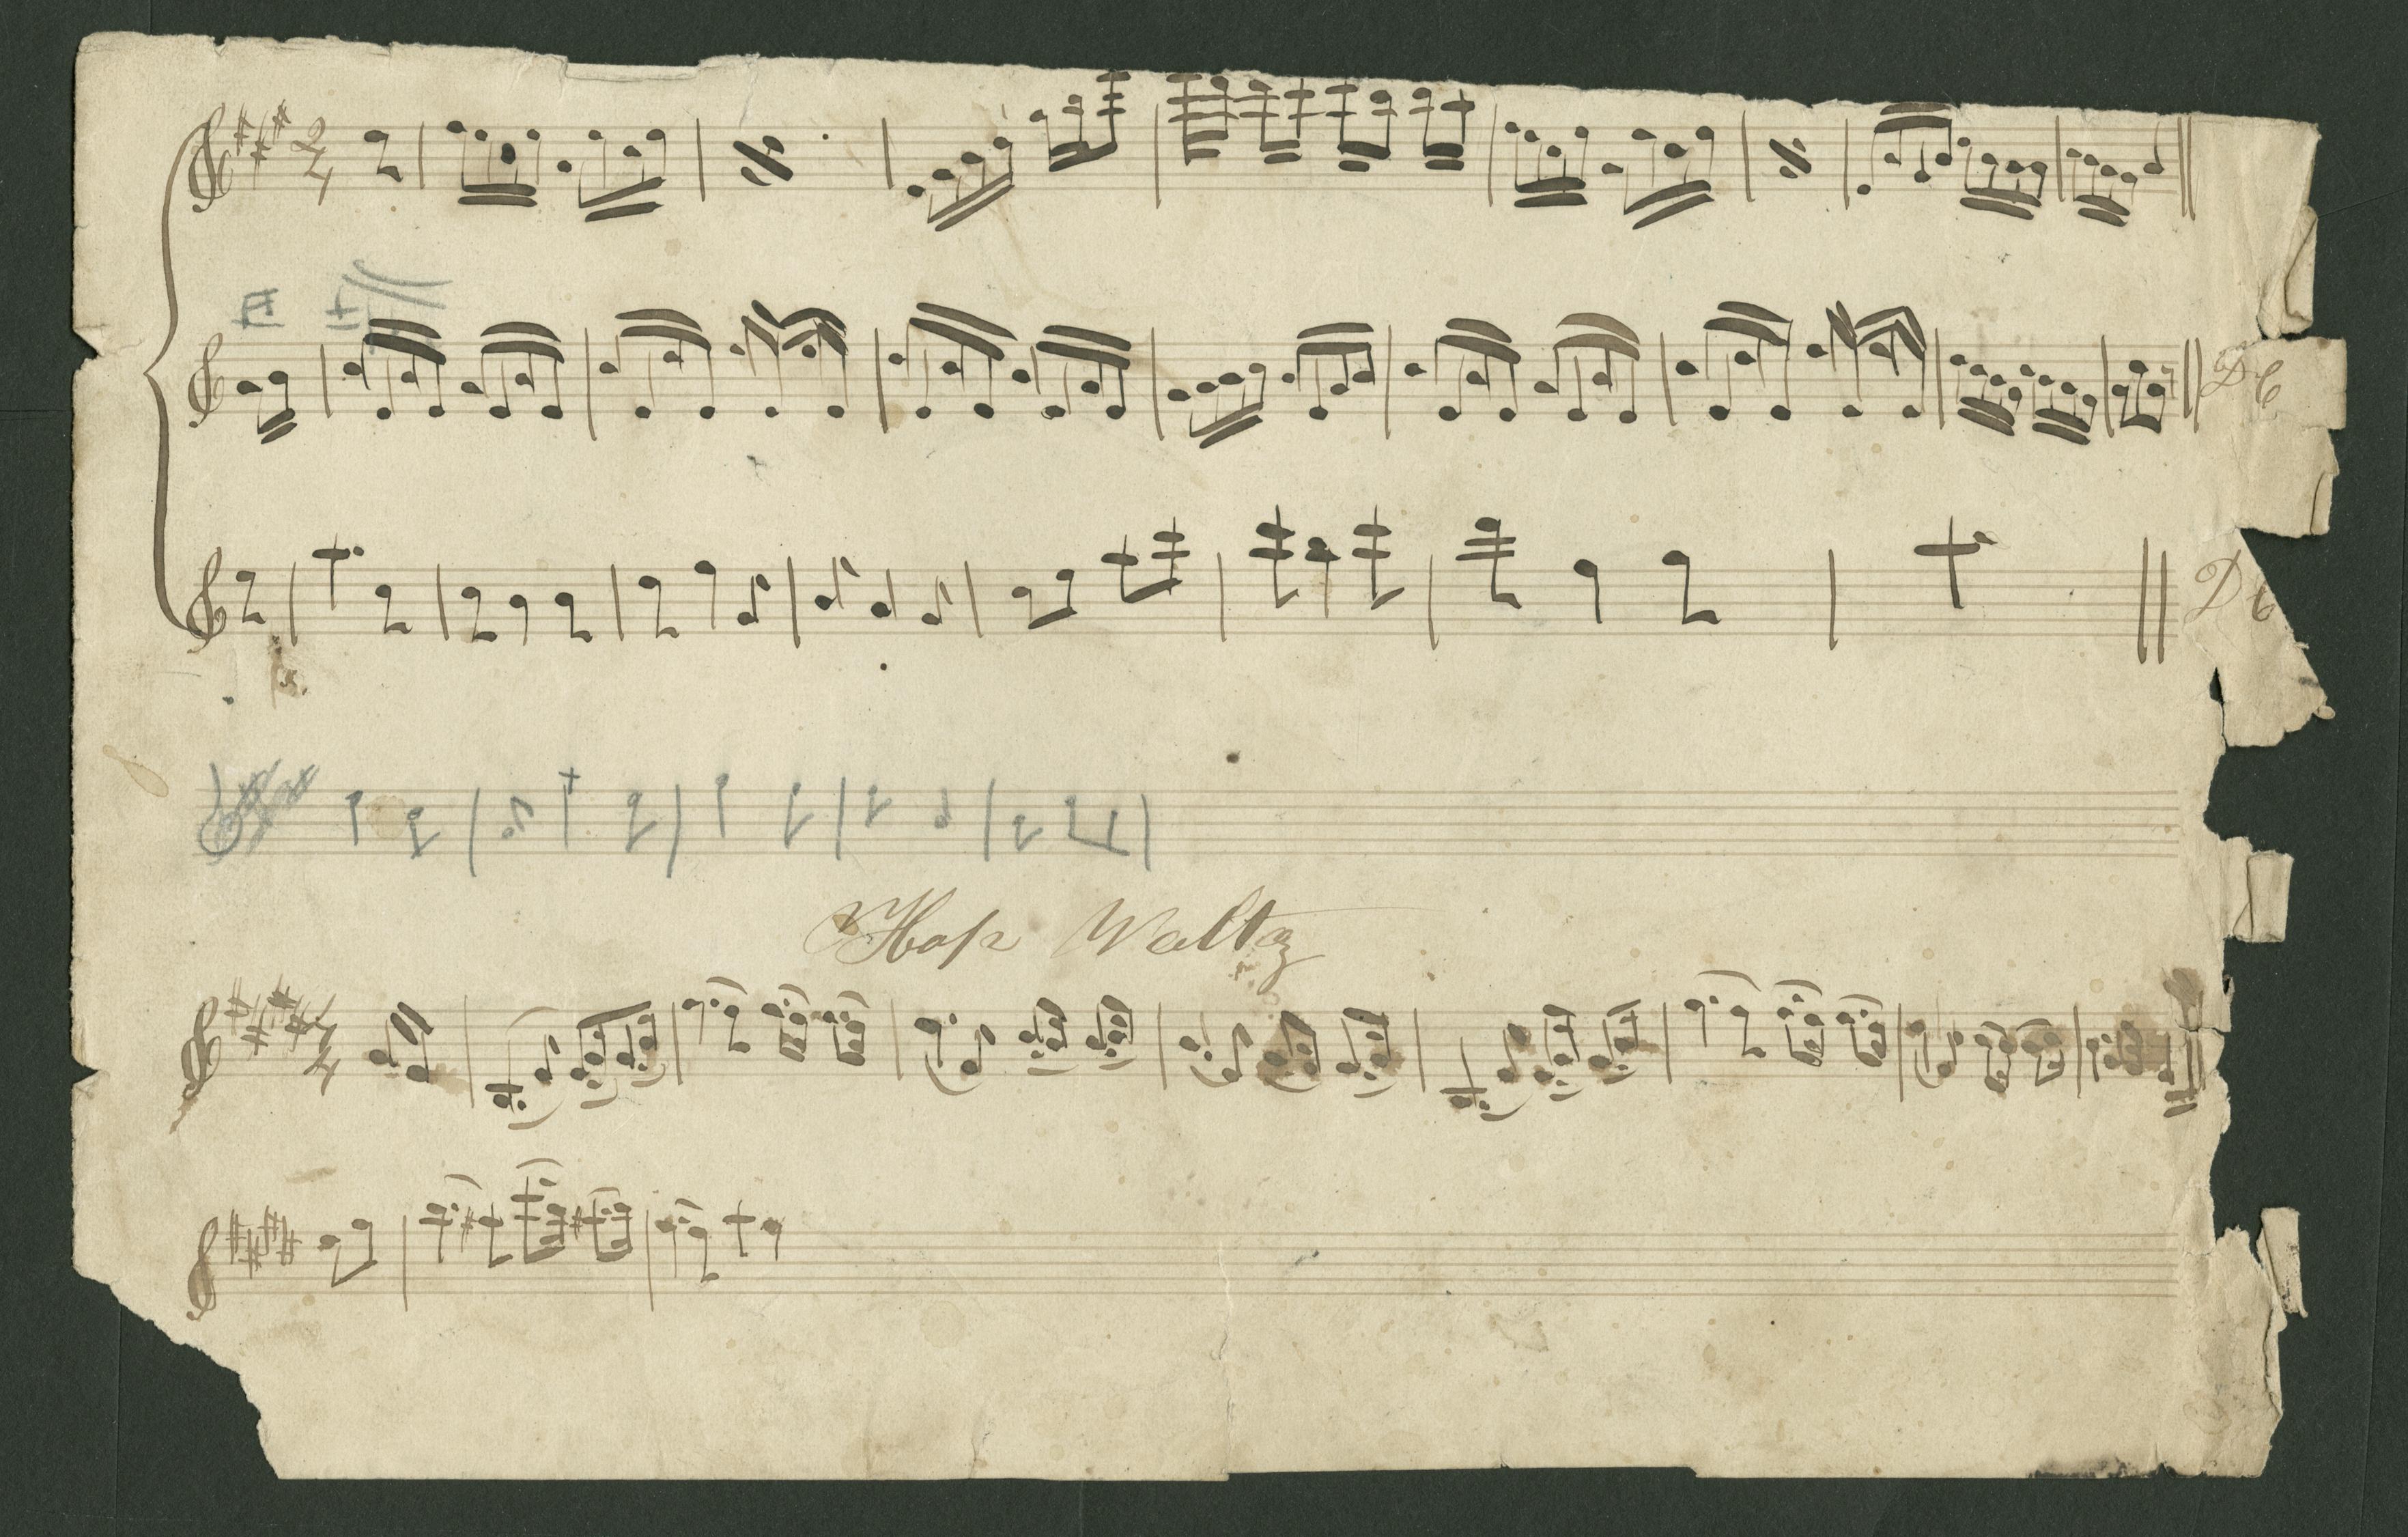 2
4
D C
D C
Hop Waltz